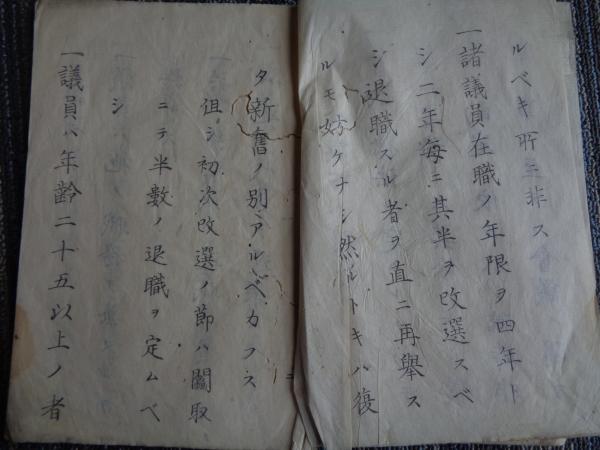 ルベキ所ニ非ス
一諸議員在職ノ年限ヲ四年ト
シ二年毎ニ其半ヲ改選スベ
シ退職スル者ヲ直ニ再挙ス
ルモ妨ケナシ然ルトキハ復
タ新奮ノ別アルベカラス
但シ初次改選ノ節ハ鬮取
ニテ半数ノ退職ヲ定ムベ
シ
一議員ハ年齢二十五以上ノ者